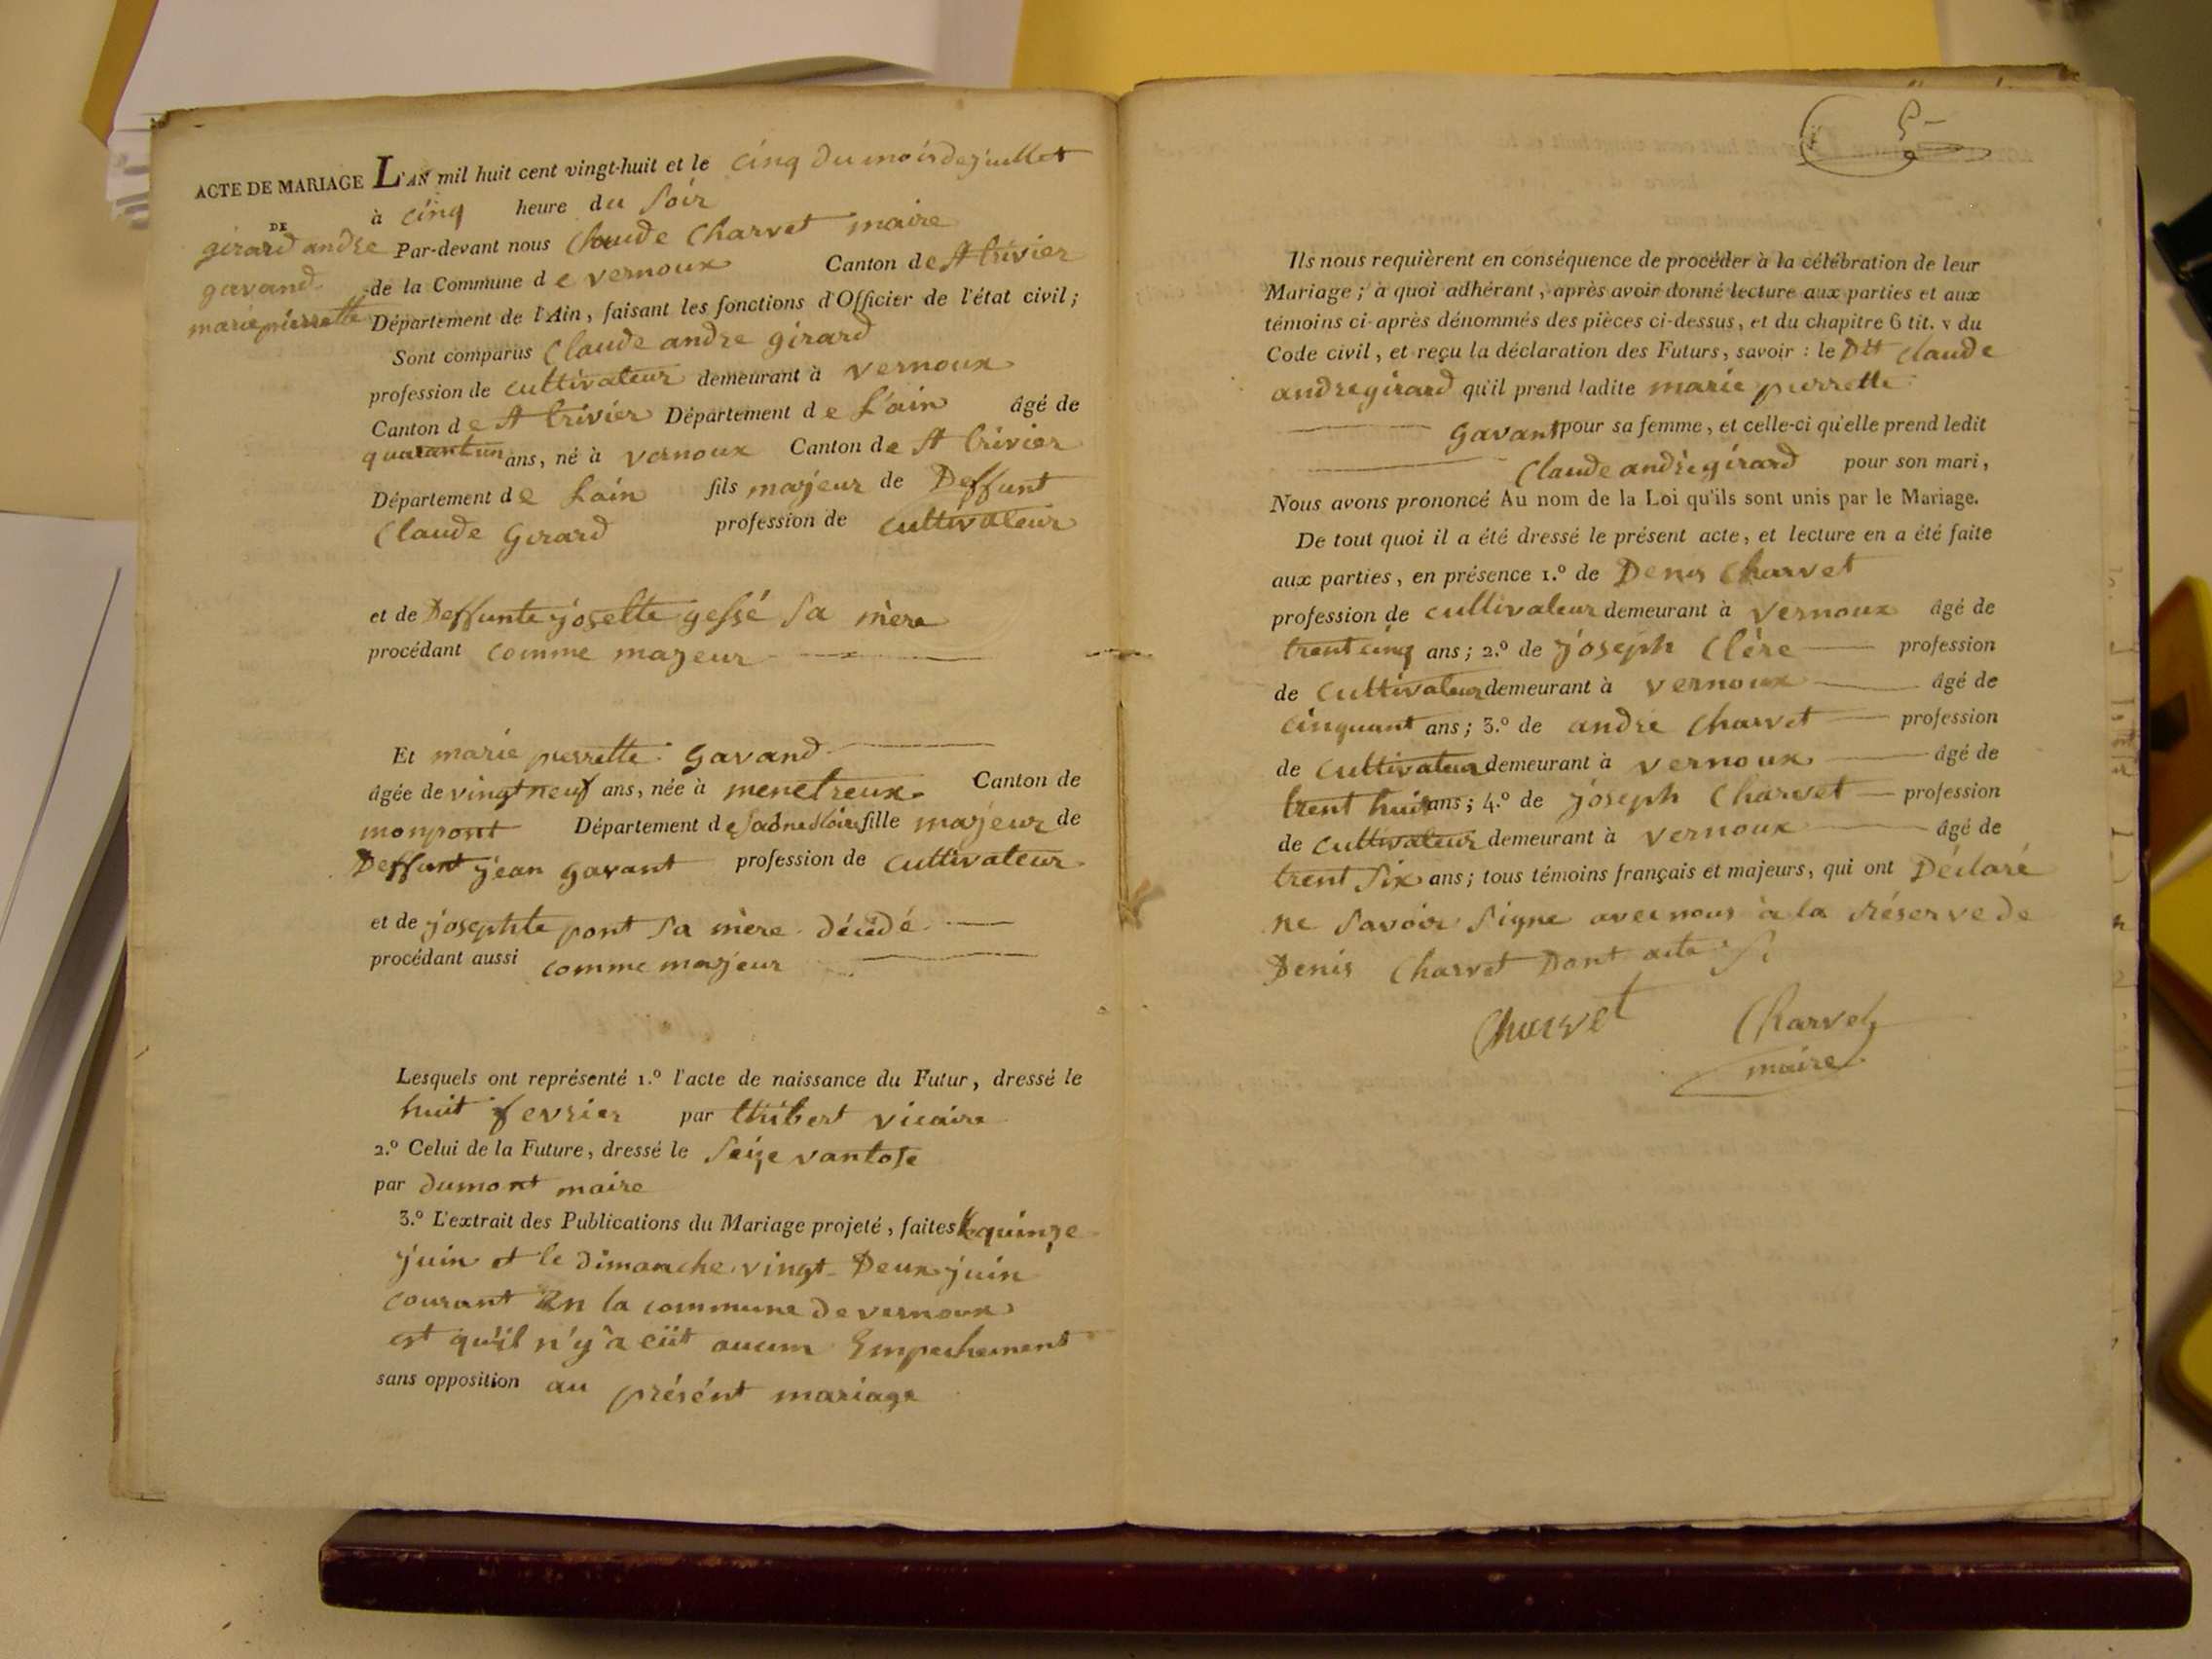 ACTE DE MARIAGE L'AN mil huit cent vingt-huit et le cinq du mois de juillet
à cinq heure du soir
DE
girard andre
gavand
marie pierrette
Par-devant nous Claude Charvet maire
de la Commune de vernoux Canton de St trivier
Département de l'Ain, faisant les fonctions d'Officier de l'état civil;
Sont comparus Claude andre girard
profession de cultivateur demeurant à vernoux
Canton de St trivier Département de L'ain âgé de
quarantun ans, né à vernoux Canton de St trivier
Département de Lain fils majeur de Deffunt
Claude Girard profession de cultivateur
et de Deffunte josette gessé sa mère
procédant comme majeur
Et marie pierrette gavand
âgée de vingt neuf ans, née à menetreux Canton de
monpont Département de Saone Loire fille majeur de
Deffunt jean gavant profession de cultivateur
et de josephte pont sa mère décédé
procédant aussi comme majeur
Lesquels ont représenté 1.º l'acte de naissance du Futur, dressé le
huit fevrier par thibert vicaire
2.º Celui de la Future, dressé le seize vantose
par dumont maire
3.º L'extrait des Publications du Mariage projeté, faites le quinze
juin et le dimanche vingt Deux juin
courant En la commune de vernoux
est qu'il n'y a eüt aucun Empechement
sans opposition au présént mariage
5
Ils nous requièrent en conséquence de procéder à la célébration de leur
Mariage; à quoi adhérant, après avoir donné lecture aux parties et aux
témoins ci-après dénommés des pièces ci-dessus, et du chapitre 6 tit. v du
Code civil, et reçu la déclaration des Futurs, savoir : le Dtt Claude
andre girard qu'il prend ladite marie pierrette
Gavant pour sa femme, et celle-ci qu'elle prend ledit
Claude andré girard pour son mari,
Nous avons prononcé Au nom de la Loi qu'ils sont unis par le Mariage.
De tout quoi il a été dressé le présent acte, et lecture en a été faite
aux parties, en présence 1.º de Denis Charvet
profession de cultivateur demeurant à vernoux âgé de
trent cinq ans; 2.º de joseph Clère profession
de cultivateur demeurant à vernoux âgé de
cinquant ans; 3.º de andre Charvet profession
de cultivateur demeurant à vernoux âgé de
trent huit ans; 4.º de joseph Charvet profession
de cultivateur demeurant à vernoux âgé de
trent six ans; tous témoins français et majeurs, qui ont Déclaré
ne savoir signe avec nous à la réserve de
Denis Charvet Dont acte
Charvet Charvet
maire